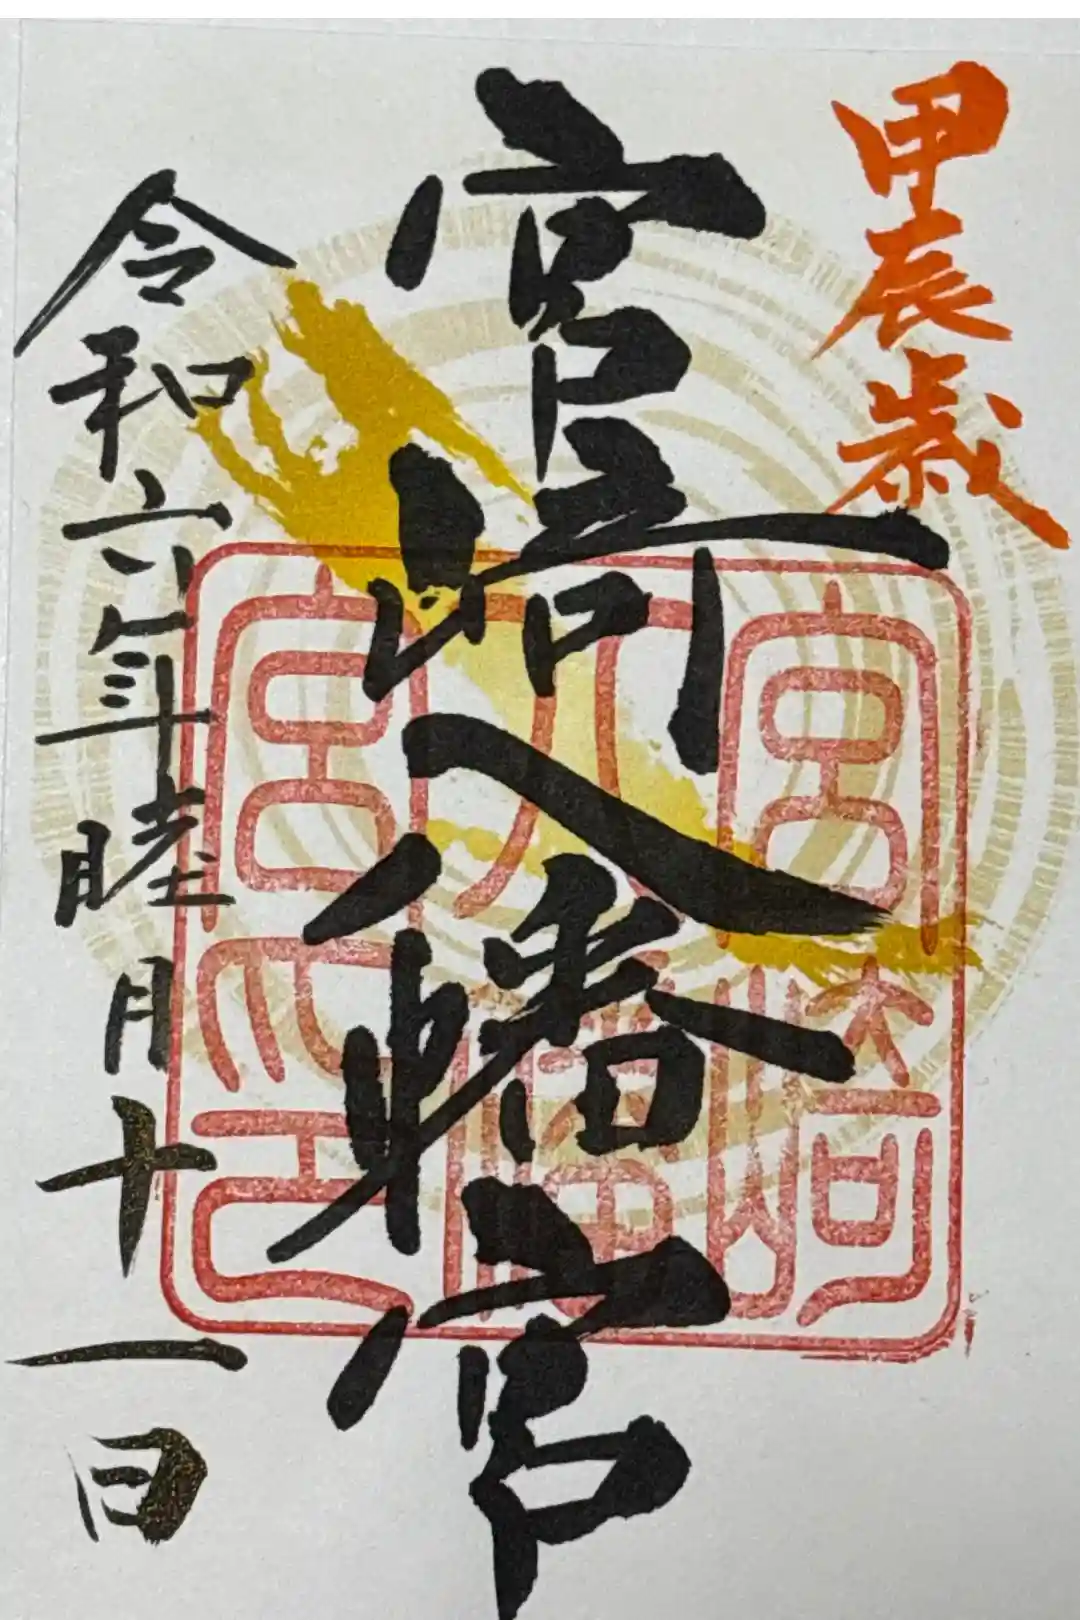 甲辰歳
宮﨑八幡宮
令和六年睦月十一日
宮﨑八幡宮之印